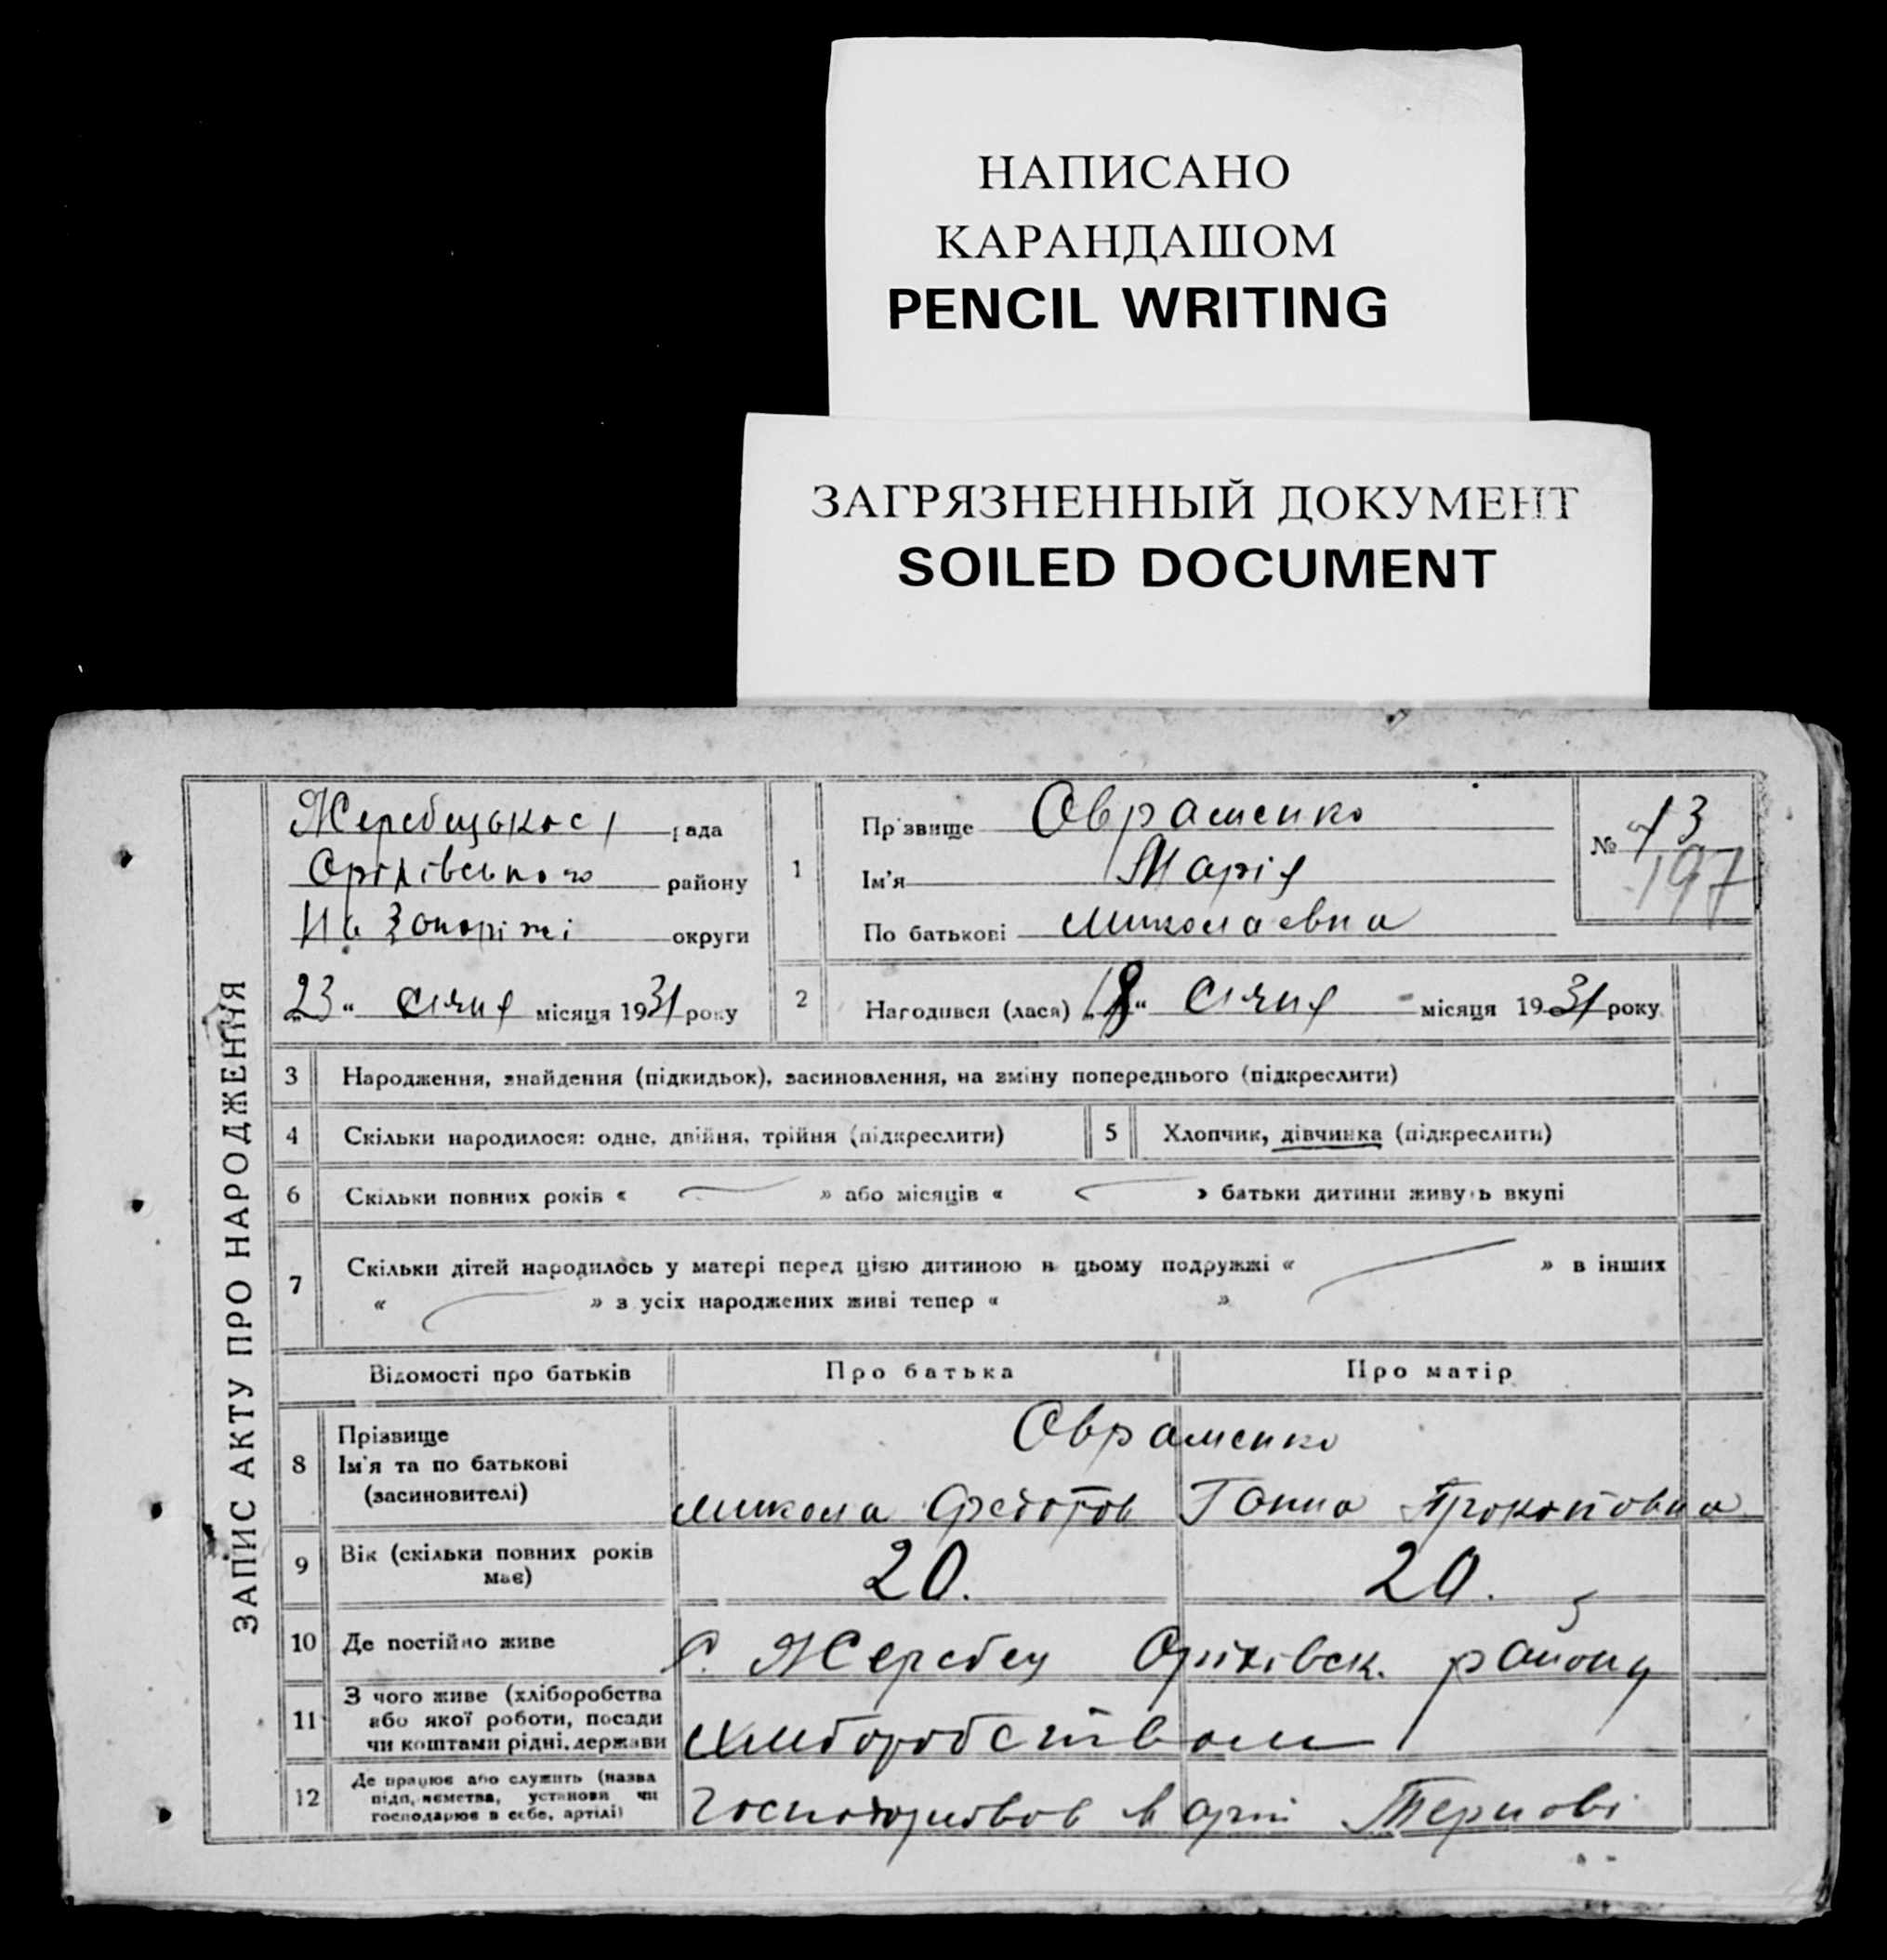 НАПИСАНО
КАРАНДАШОМ
PENCIL WRITING
ЗАГРЯЗНЕННЫЙ ДОКУМЕНТ
SOILED DOCUMENT
ЗАПИС АКТУ ПРО НАРОДЖЕННЯ
Жеребецькоє рада
Оріхівського району
На Запоріжжі округи
„23“ січня місяця 1931 року
1 Прізвище Овраменко
Ім'я Марія
По батькові Миколаевна
№ 13
197
2 Народився (лася) „18“ січня місяця 1931 року
3 Народження, знайдення (підкидьок), засиновлення, на зміну попереднього (підкреслити)
4 Скільки народилося: одне, двійня, трійня (підкреслити) 5 Хлопчик, дівчинка (підкреслити)
6 Скільки повних років « » або місяців « » батьки дитини живуть вкупі
7 Скільки дітей народилось у матері перед цією дитиною в цьому подружжі « » в інших
« » з усіх народжених живі тепер « »
Відомості про батьків Про батька Про матір
8 Прізвище
Ім'я та по батькові
(засиновителі)
Овраменко
Микола Федотов Ганна Прокоповна
9 Вік (скільки повних років має) 20. 20.
10 Де постійно живе С. Жеребец Оріхівск. району
11 З чого живе (хліборобства
або якої роботи, посади
чи коштами рідні, держави
хліборобством
12 Де працює або служить (назва
підприємства, установи чи
господарює в себе, артілі)
господорював в арті Тернові